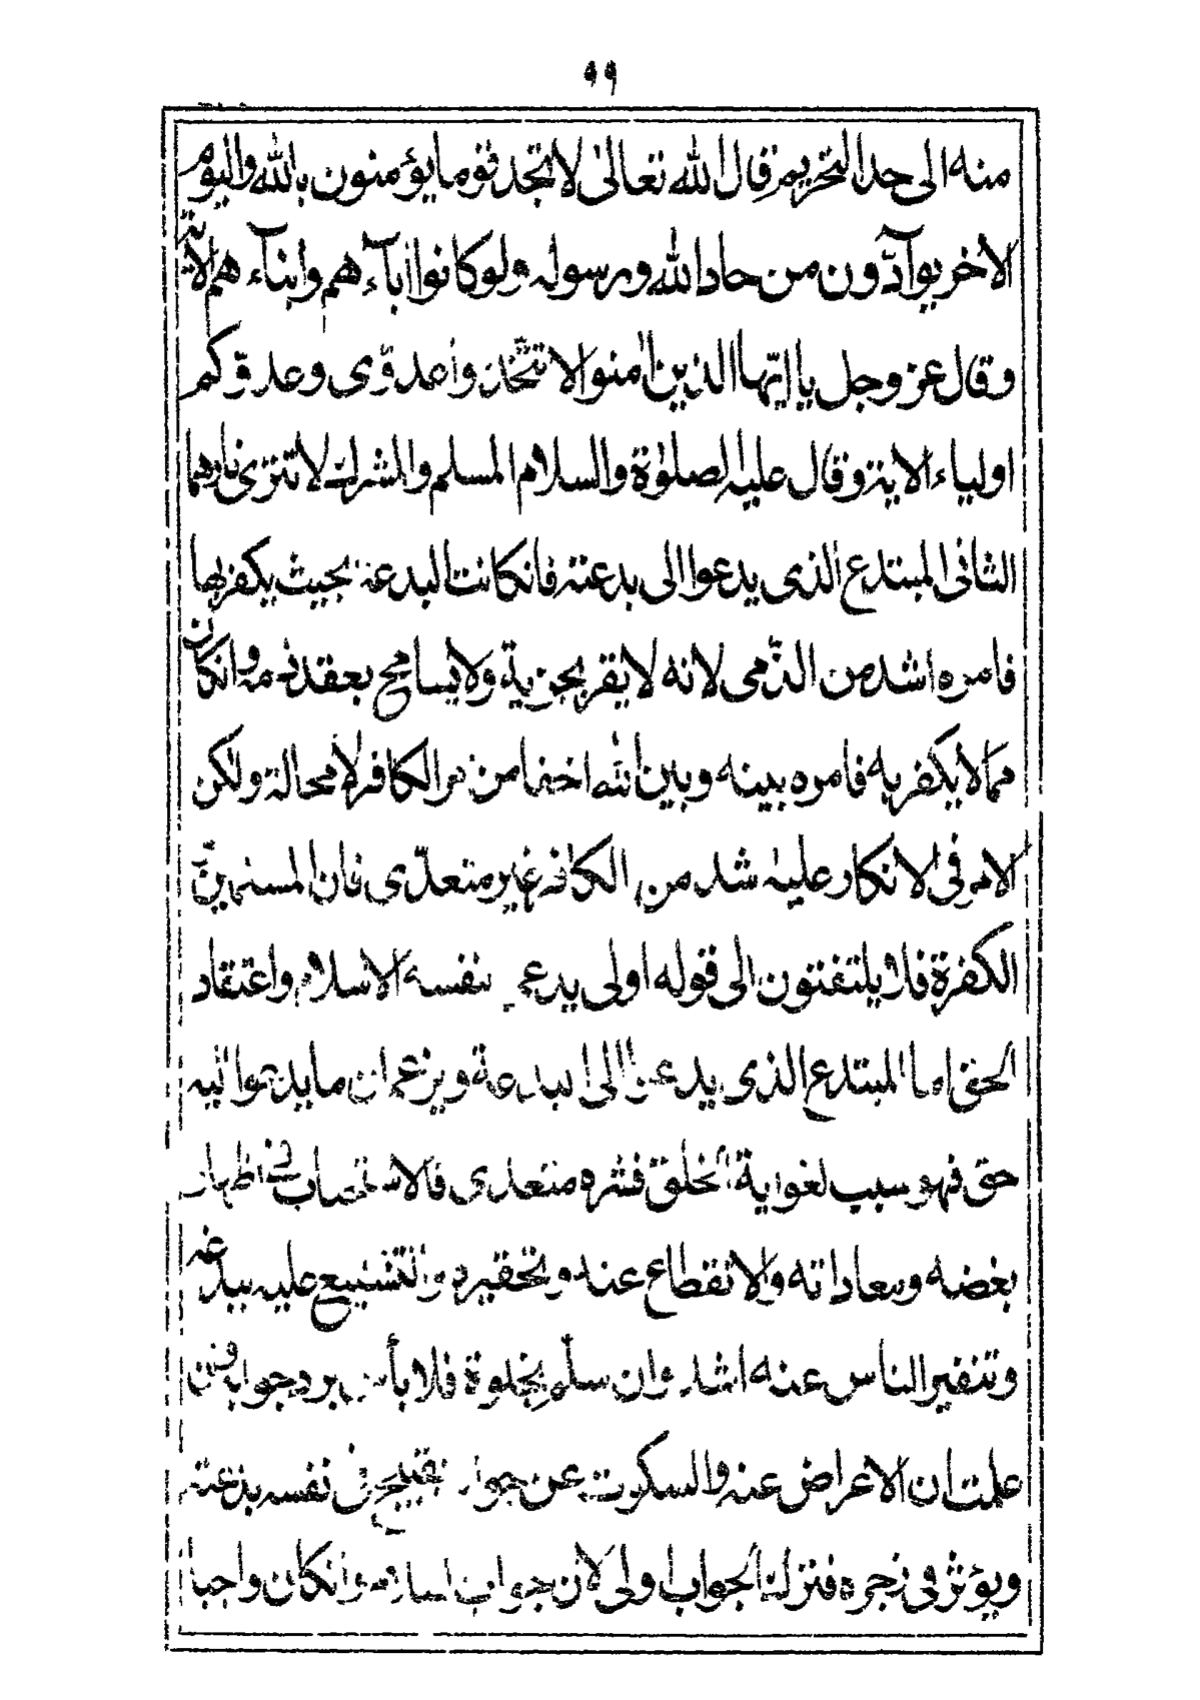 ٩٩
منه الى حد التحريم قال الله تعالىٰ لا تجد قوما يؤمنون بالله واليوم
الاخر يوآدّون من حاد الله ورسوله ولو كانوا اٰبآءهم وابنآءهم الاٰية
وقال عز وجل يا ايّها الذين اٰمنوا لا تتّخذوا عدوّى وعدوّكم
اولياء الاية وقال عليه الصلوٰة والسلام المسلم والمشرك لا تترى نارهما
الثانى المبتدع الذى يدعوا الى بدعته فانكانت البدعة بحيث يكفر بها
فامره اشد من الذّمى لانه لا يقر بجزية ولا يسامح بعقد ذمة وانكان
ممّا لا يكفر به فامره بينه وبين الله اخف من امر الكافر لا محالة ولكن
الامر فى الانكار عليه اشد من الكافر غير متعدّى فان المسلمين
الكفرة فلا يلتفتون الى قوله اولى يدعى نفسه الاسلام واعتقاد
الحق اما المبتدع الذى يدعوا الى البدعة ويزعم ان ما يدعوا اليه
حق فهو سبب لغواية الخلق فشره متعدى فالاستحباب فى اظهار
بغضه ومعاداته والانقطاع عنه وتحقيره والتشنيع عليه ببدعته
وتنفير الناس عنه اشد وان سلّم بخلوة فلا بأس برد جوابه وان
علمت ان الاعراض عنه والسكوت عن جوابه يقبح فى نفسه بدعته
ويؤثر فى زجره فترك الجواب اولى لان جواب السلام وانكان واجبا